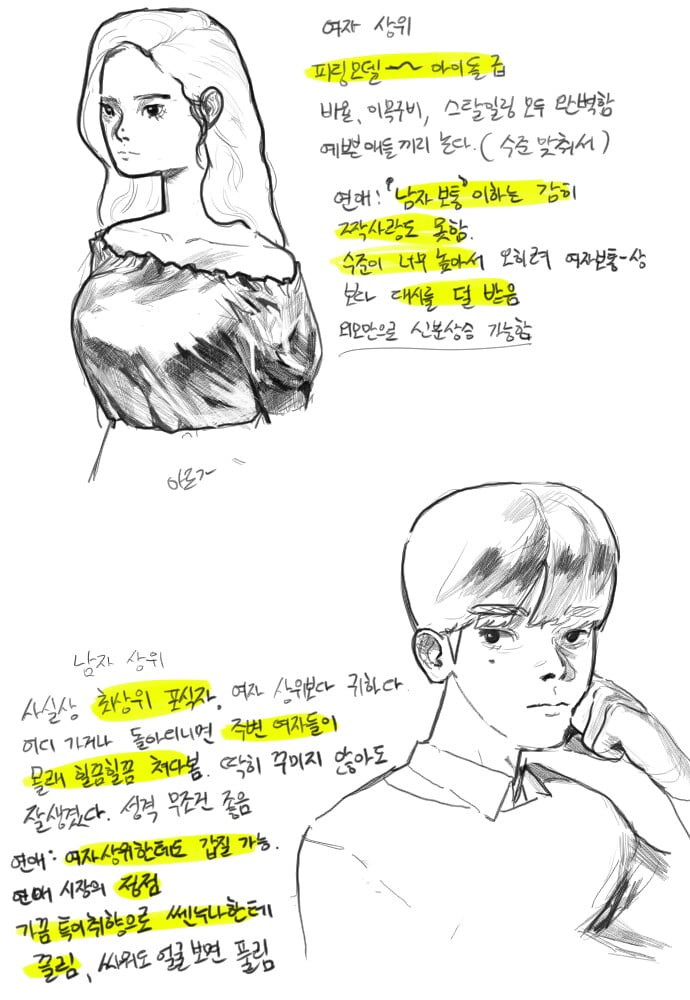 여자 상위
피팅모델 ~ 아이돌급
비율, 이목구비, 스탈일링 모두 완벽함
예쁜애들끼리 논다. (수준 맞춰서)
연애: "남자보통" 이하는 감히
짝사랑도 못함.
수준이 너무 높아서 오히려 여자보통-상
보다 대시를 덜 받음
외모만으로 신분상승 가능함
남자 상위
사실상 최상위 포식자, 여자 상위보다 귀하다.
어디 가거나 돌아다니면 주변 여자들이
몰래 힐끔힐끔 쳐다봄. 딱히 꾸미지 않아도
잘생겼다. 성격 무조건 좋음
연애: 여자상위한테도 갑질 가능.
연애 시장의 정점
가끔 특이취향으로 쎈누나한테
끌림, 싸워도 얼굴보면 풀림